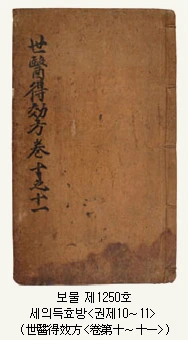 世醫得効方卷十之十一
보물 제1250호
세의득효방<권제10~11>
(世醫得效方<卷第十~十一>)